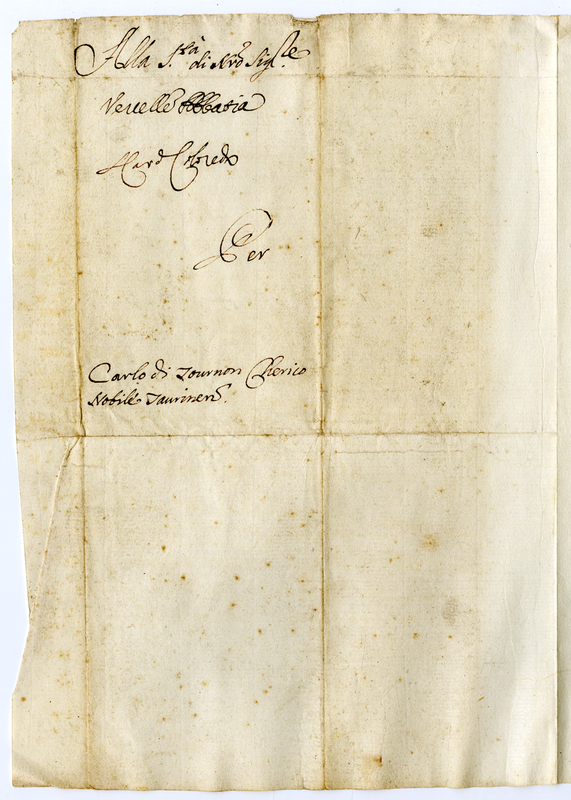 Alla S.tà di Nro Sig.re
Vercelle Abbatia
Card Coloredo
Per
Carlo di Tournon Cherico
Nobile Taurinen.